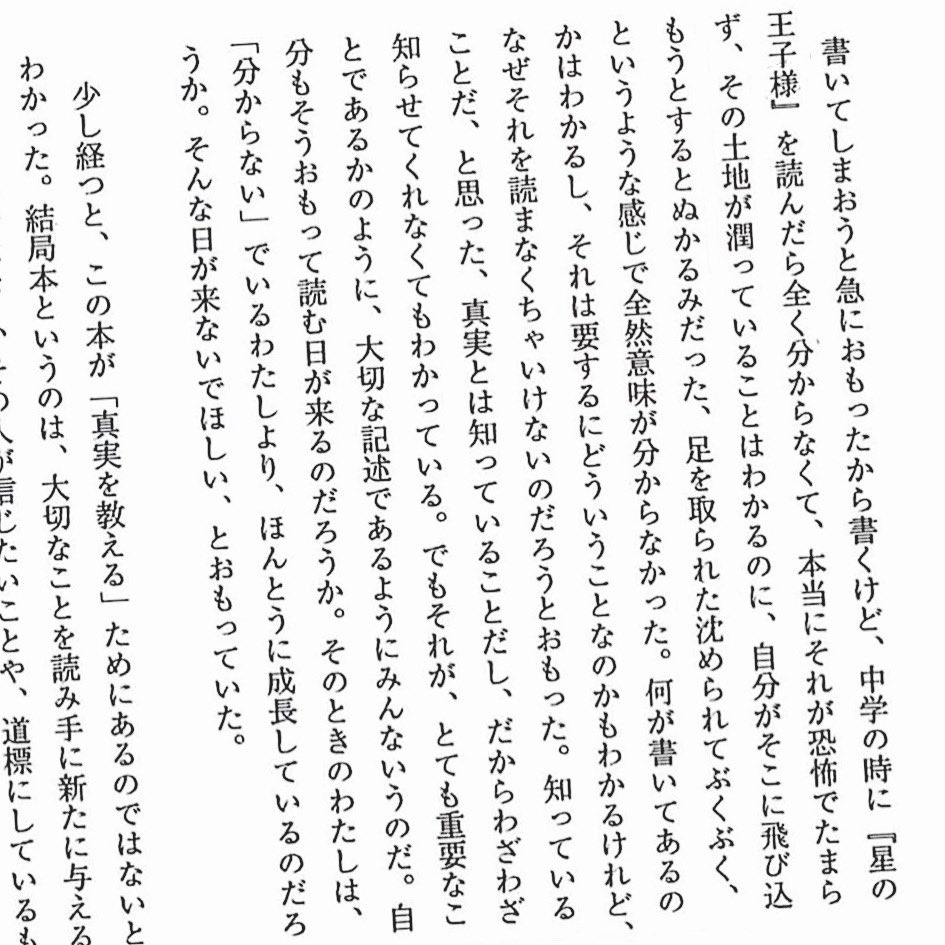 書いてしまおうと急におもったから書くけど、中学の時に『星の
王子様』を読んだら全く分からなくて、本当にそれが恐怖でたまら
ず、その土地が潤っていることはわかるのに、自分がそこに飛び込
もうとするとぬかるみだった、足を取られた沈められてぶくぶく、
というような感じで全然意味が分からなかった。何が書いてあるの
かはわかるし、それは要するにどういうことなのかもわかるけれど、
なぜそれを読まなくちゃいけないのだろうとおもった。知っている
ことだ、と思った、真実とは知っていることだし、だからわざわざ
知らせてくれなくてもわかっている。でもそれが、とても重要なこ
とであるかのように、大切な記述であるようにみんないうのだ。自
分もそうおもって読む日が来るのだろうか。そのときのわたしは、
「分からない」でいるわたしより、ほんとうに成長しているのだろ
うか。そんな日が来ないでほしい、とおもっていた。
少し経つと、この本が「真実を教える」ためにあるのではないと
わかった。結局本というのは、大切なことを読み手に新たに与える
その人が信じたいことや、道標にしているも